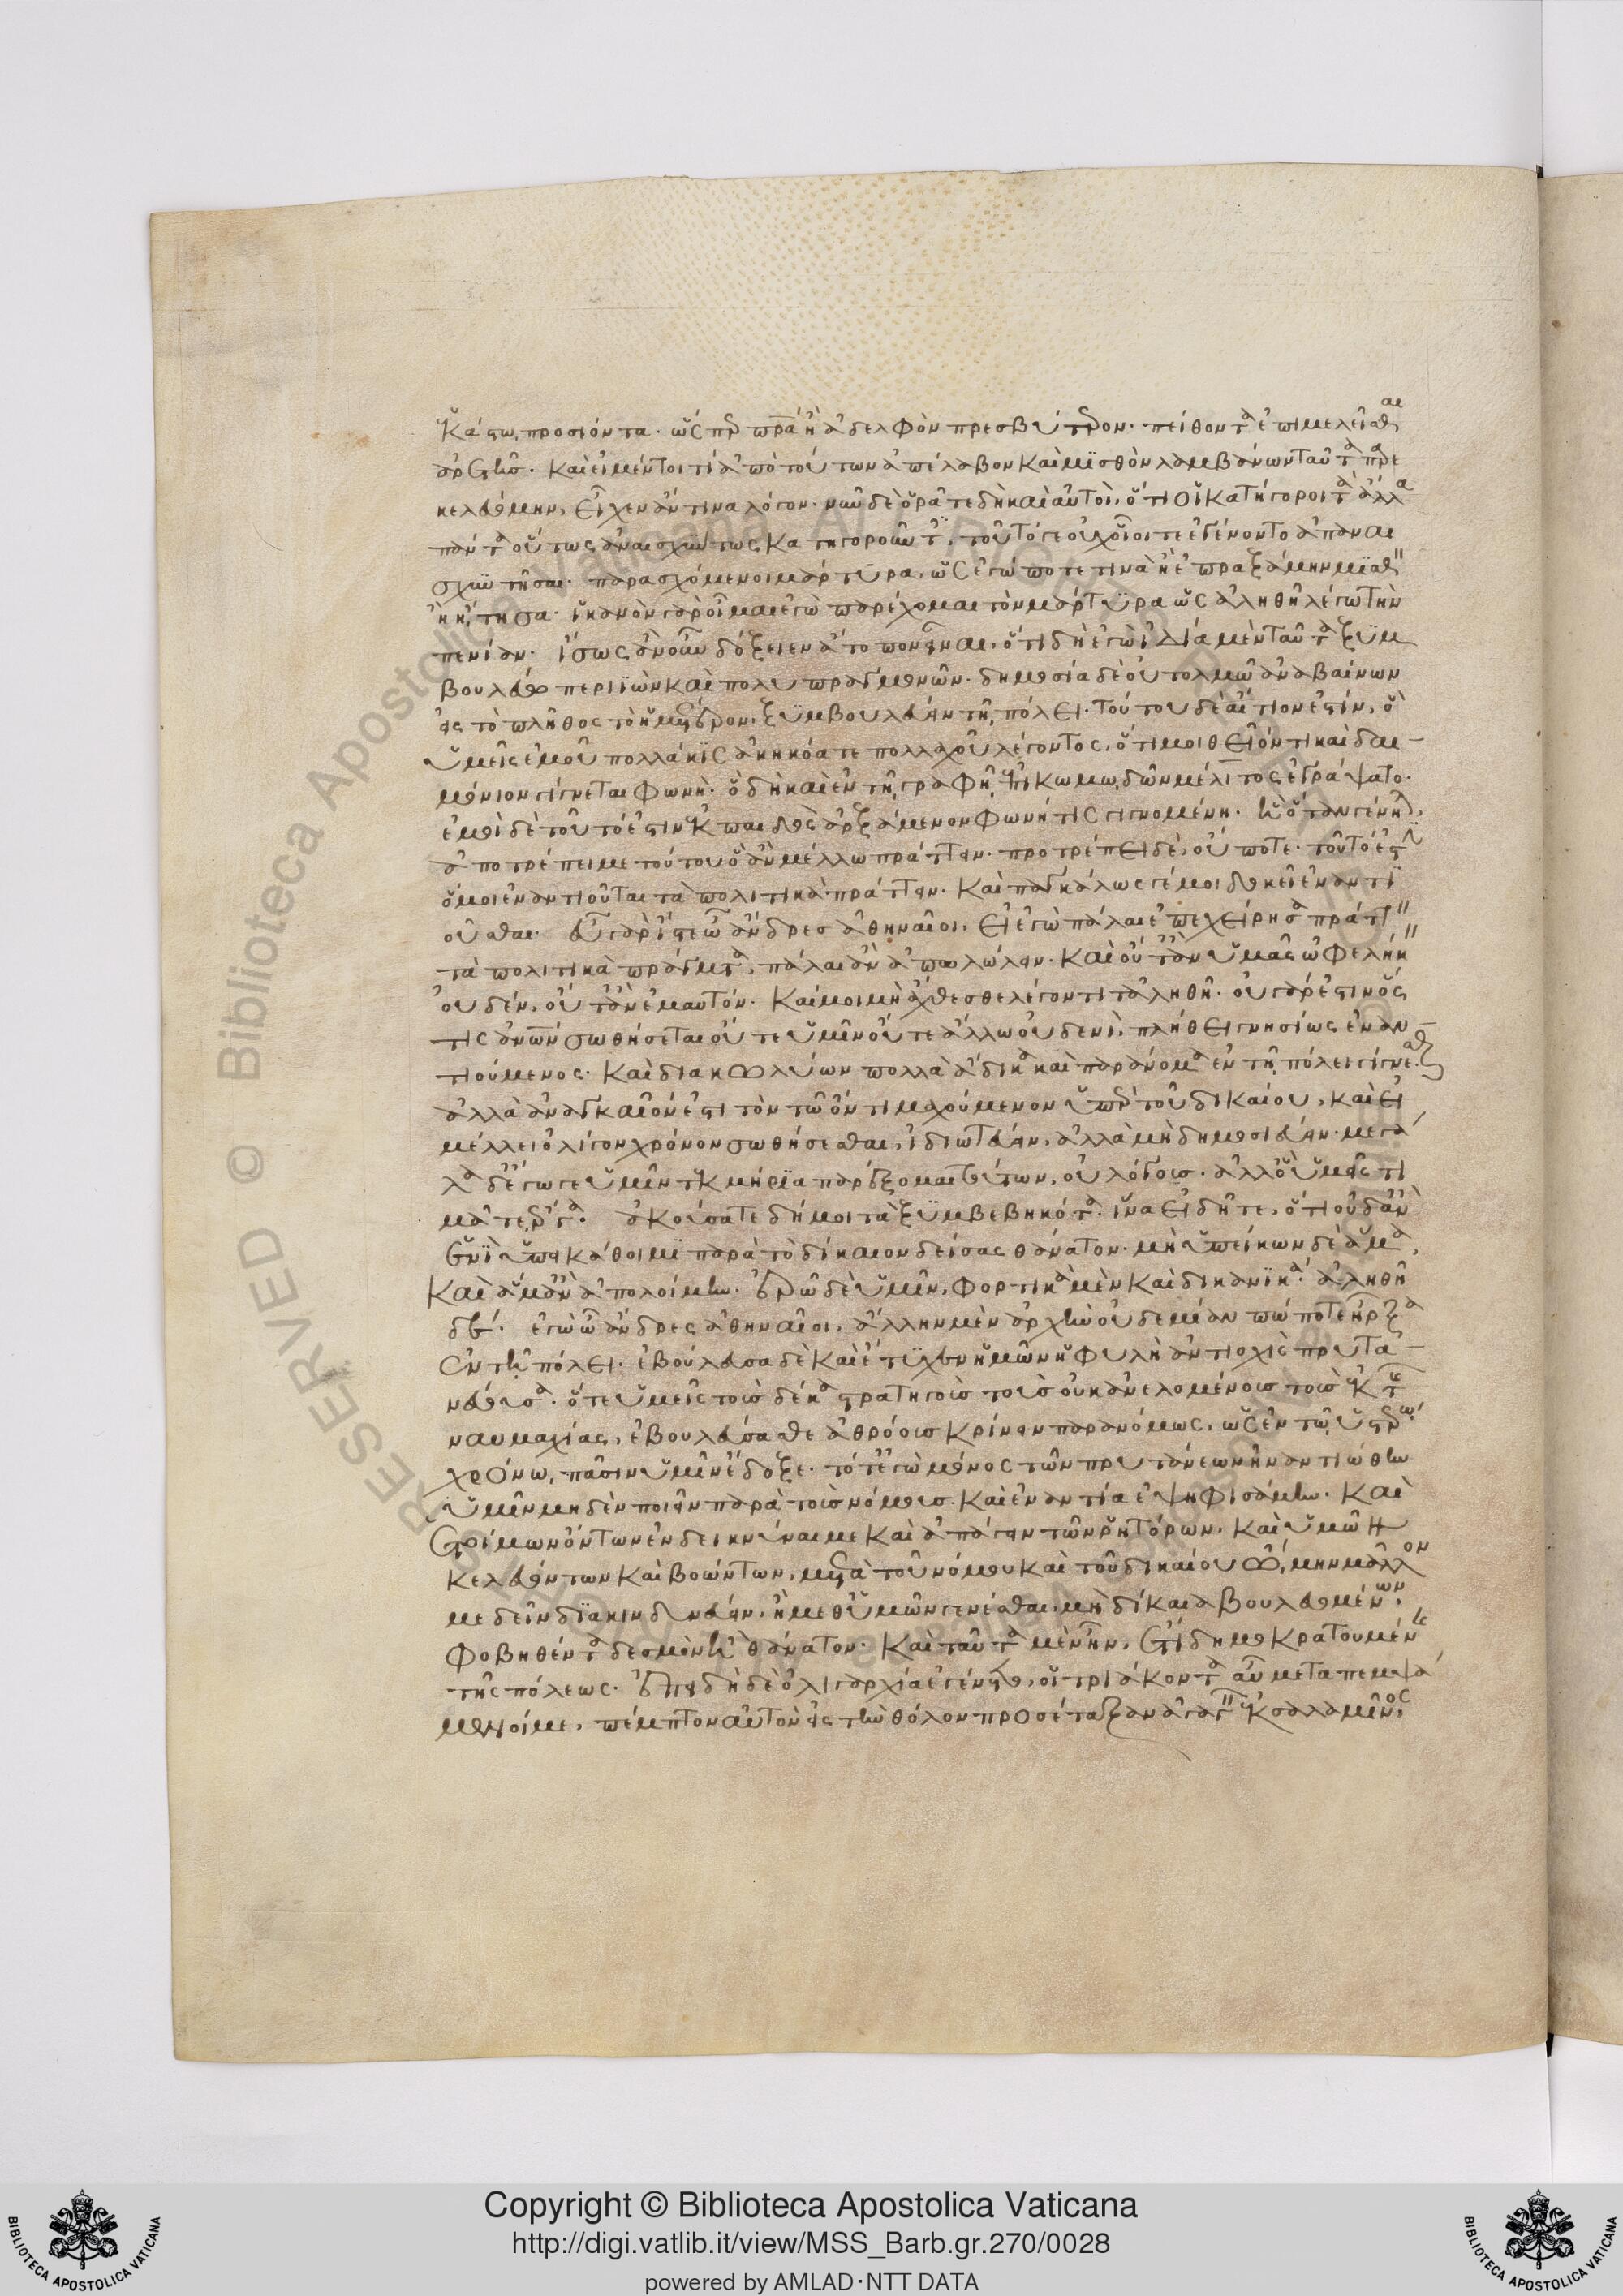 ἑκάστῳ προσιόντα· ὥσπερ πατέρα ἢ ἀδελφὸν πρεσβύτερον· πείθοντα ἐπιμελεῖσθαι
ἀρετῆς· καὶ εἰ μέντοι τὶ ἀπὸ τούτων ἀπέλαβον καὶ μισθὸν λαμβάνων ταῦτα παρε
κελευόμην, εἶχεν ἄν τινα λόγον· νῦν δὲ ὁρᾶτε δὴ καὶ αὐτοὶ, ὅτι οἱ κατήγοροι τὰ ἄλλα
πάντα οὕτως ἀναισχύντως κατηγοροῦντες, τοῦτό γε οὐχ οἷοί τε ἐγένοντο ἀπαναι
σχυντῆσαι· παρασχόμενοι μάρτυρα, ὡς ἐγώ ποτε τινὰ ἢ ἐπραξάμην μισθὸν
ἢ ᾔτησα· ἱκανὸν γὰρ οἶμαι ἐγὼ παρέχομαι τὸν μάρτυρα ὡς ἀληθῆ λέγω τὴν
πενίαν· ἴσως ἂν οὖν δόξειεν ἄτοπον εἶναι, ὅτι δὴ ἐγὼ ἰδίᾳ μὲν ταῦτα ξυμ
βουλεύω περιϊὼν καὶ πολυπραγμονῶν· δημοσίᾳ δὲ οὐ τολμῶ ἀναβαίνων
εἰς τὸ πλῆθος τὸ ἡμέτερον, ξυμβουλεύειν τῇ πόλει· τούτου δὲ αἴτιόν ἐστιν, ὃ
ὑμεῖς ἐμοῦ πολλάκις ἀκηκόατε πολλαχοῦ λέγοντος, ὅτι μοι θεῖόν τι καὶ δαι
μόνιον γίγνεται φωνὴ· ὃ δὴ καὶ ἐν τῇ γραφῇ ἐπικωμῳδῶν μέλιτος ἐγράψατο·
ἐμοὶ δὲ τοῦτό ἐστιν ἐκ παιδὸς ἀρξάμενον φωνή τις γιγνομένη· ἣ ὅταν γένηται,
ἀποτρέπει με τούτου ὃ ἂν μέλλω πράττειν· προτρέπει δὲ, οὔποτε· τοῦτό ἐστιν
ὅ μοι ἐναντιοῦται τὰ πολιτικὰ πράττειν· καὶ παγκάλως γέ μοι δοκεῖ ἐναντι
οῦσθαι· εὖ γὰρ ἴστε ὦ ἄνδρες ἀθηναῖοι, εἰ ἐγὼ πάλαι ἐπεχείρησα πράττειν
τὰ πολιτικὰ πράγματα, πάλαι ἂν ἀπολώλειν· καὶ οὔτ' ἂν ὑμᾶς ὠφελήκειν
οὐδέν, οὔτ' ἂν ἐμαυτόν· καί μοι μὴ ἄχθεσθε λέγοντι τἀληθῆ· οὐ γάρ ἐστιν ὅς
τις ἀνθρώπων σωθήσεται οὔτε ὑμῖν οὔτε ἄλλῳ οὐδενὶ, πλήθει γνησίως ἐναν
τιούμενος· καὶ διακωλύων πολλὰ ἄδικα καὶ παράνομα ἐν τῇ πόλει γίγνεσθαι·
ἀλλὰ ἀναγκαῖόν ἐστι τὸν τῷ ὄντι μαχούμενον ὑπὲρ τοῦ δικαίου, καὶ εἰ
μέλλει ὀλίγον χρόνον σωθήσεσθαι, ἰδιωτεύειν, ἀλλὰ μὴ δημοσιεύειν· μεγά
λα δ' ἔγωγε ὑμῖν τεκμήρια παρέξομαι τούτων, οὐ λόγοις· ἀλλ' ὃ ὑμεῖς τι
μᾶτε, ἔργα· ἀκούσατε δή μοι τὰ ξυμβεβηκότα· ἵνα εἰδῆτε, ὅτι οὐδ' ἂν
ἑνὶ ὑπεικάθοιμι παρὰ τὸ δίκαιον δείσας θάνατον· μὴ ὑπείκων δὲ ἅμα,
καὶ ἅμ' ἂν ἀπολοίμην· ἐρῶ δὲ ὑμῖν, φορτικὰ μὲν καὶ δικανικά· ἀληθῆ
δέ· ἐγὼ ὦ ἄνδρες ἀθηναῖοι, ἄλλην μὲν ἀρχὴν οὐδεμίαν πώποτε ἦρξα
ἐν τῇ πόλει· ἐβούλευσα δὲ καὶ ἔτυχεν ἡμῶν ἡ φυλὴ ἀντιοχὶς πρυτα
νεύουσα· ὅτε ὑμεῖς τοὺς δέκα στρατηγοὺς τοὺς οὐκ ἀνελομένους τοὺς ἐκ τῆς
ναυμαχίας, ἐβουλεύσασθε ἀθρόους κρίνειν παρανόμως, ὡς ἐν τῷ ὑστέρῳ
χρόνῳ, πᾶσιν ὑμῖν ἔδοξε· τότ' ἐγὼ μόνος τῶν πρυτάνεων ἠναντιώθην
ὑμῖν μηδὲν ποιεῖν παρὰ τοὺς νόμους· καὶ ἐναντία ἐψηφισάμην· καὶ
ἑτοίμων ὄντων ἐνδεικνύναι με καὶ ἀπάγειν τῶν ῥητόρων, καὶ ὑμῶν
κελευόντων καὶ βοώντων, μετὰ τοῦ νόμου καὶ τοῦ δικαίου ᾤμην μᾶλλον
με δεῖν διακινδυνεύειν, ἢ μεθ' ὑμῶν γενέσθαι, μὴ δίκαια βουλευομένων,
φοβηθέντα δεσμὸν ἢ θάνατον· καὶ ταῦτα μὲν ἦν, ἔτι δημοκρατουμένης
τῆς πόλεως· ἐπειδὴ δὲ ὀλιγαρχία ἐγένετο, οἱ τριάκοντα αὖ μεταπεμψά
μενοί με, πέμπτον αὐτὸν εἰς τὴν θόλον προσέταξαν ἀγαγεῖν ἐκ σαλαμῖνος
Copyright © Biblioteca Apostolica Vaticana
http://digi.vatlib.it/view/MSS_Barb.gr.270/0028
powered by AMLAD·NTT DATA